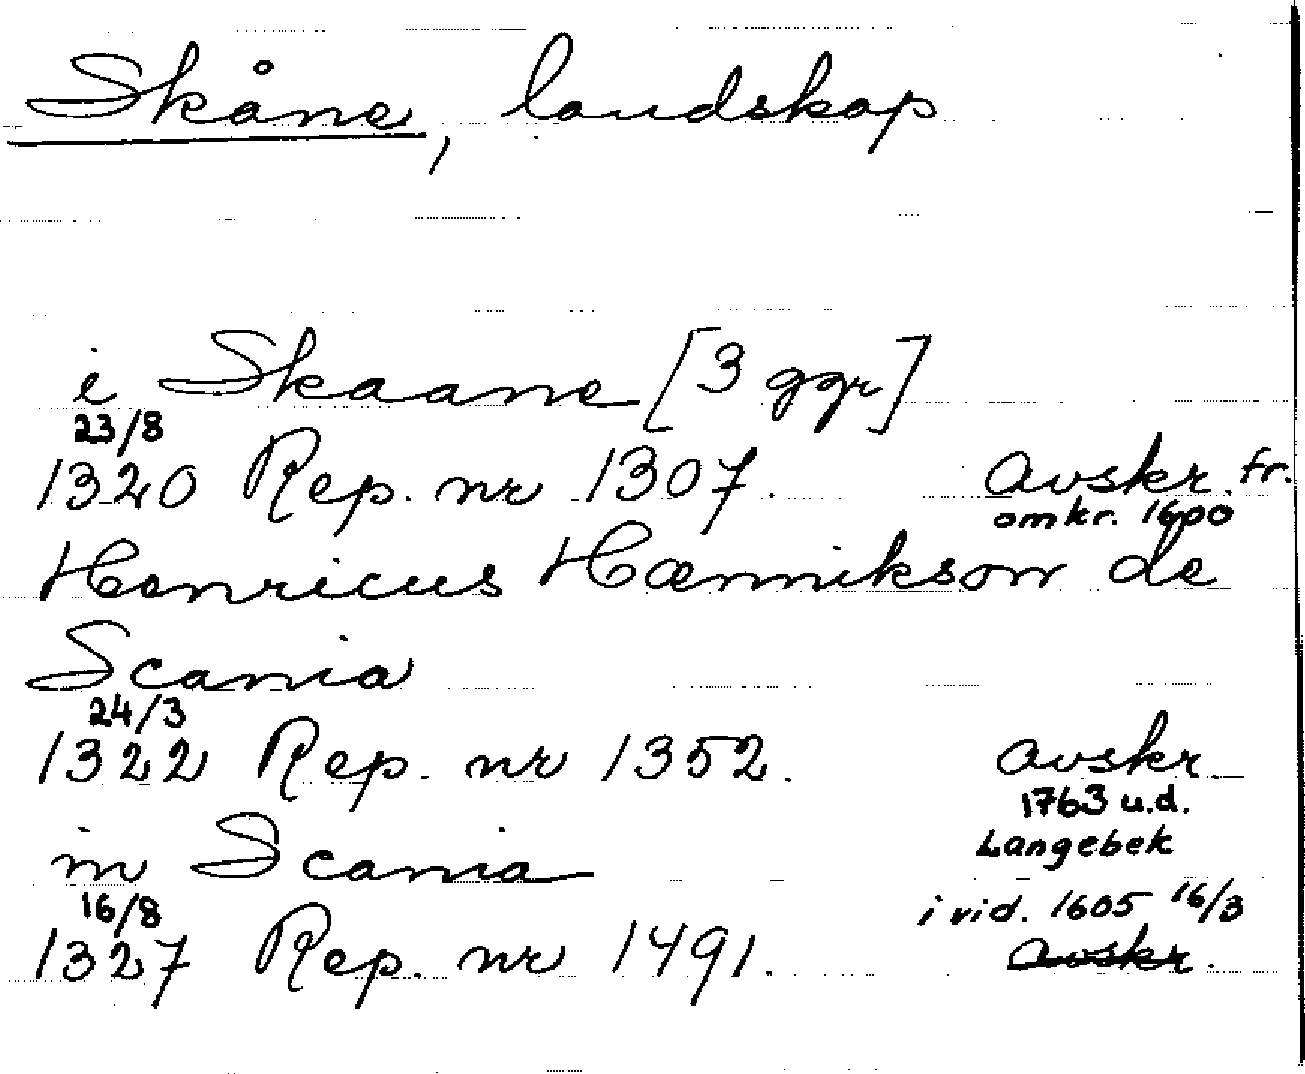 Skåne, landskap
i Skaane [3 ggr]
23/8
1320 Rep. nr 1307. Avskr. fr.
omkr. 1600
Henricus Hænnikson de
Scania
24/3
1322 Rep. nr 1352. Avskr.
1763 u.d.
Langebek
in Scania
16/8 i vid. 1605 16/3
1327 Rep. nr 1491. Avskr.